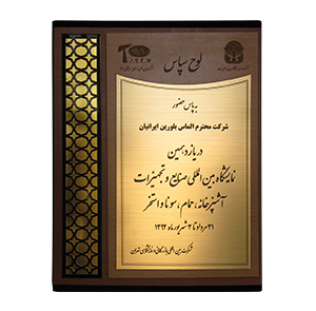 لوح سپاس
به پاس حضور
شرکت محترم الماس بلورین ایرانیان
در یازدهمین
نمایشگاه بین المللی صنایع و تجهیزات
آشپزخانه، حمام، سونا و استخر
۳۱ مرداد تا ۳ شهریور ماه ۱۳۹۳